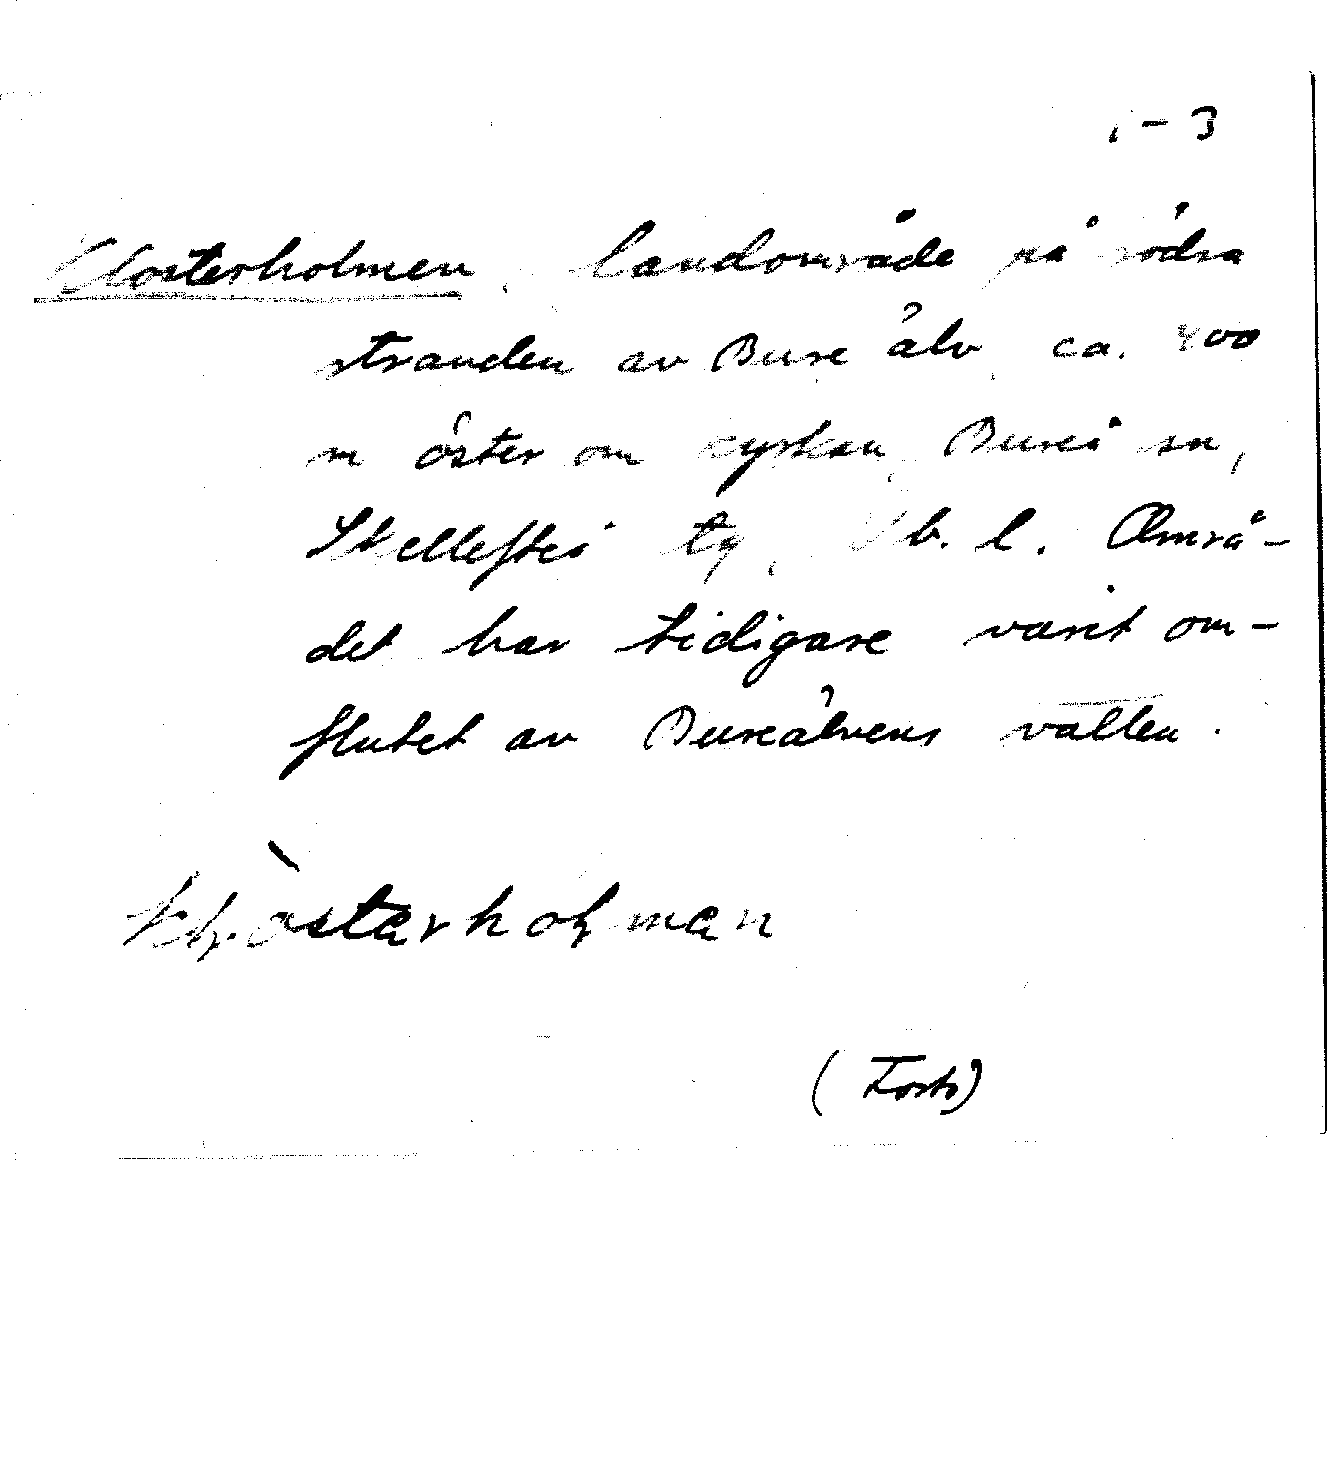 1-3
Klosterholmen, landområde på södra
stranden av Bure älv, ca. 400
m öster om kyrkan, Bureå sn,
Skellefteå tg, Vb. l. Områ-
det har tidigare varit om-
flutet av Bureälvens vatten.
(Forts)